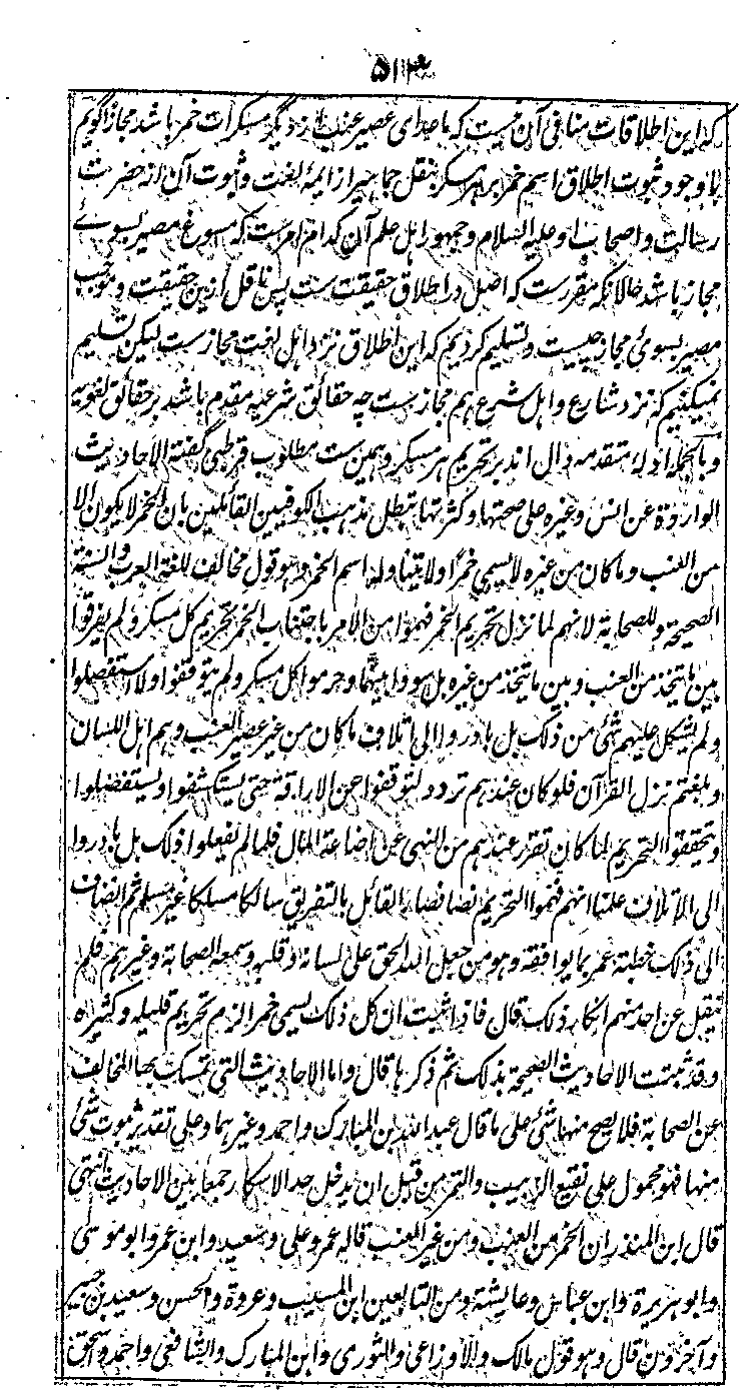 ۵۱۳
که این اطلاقات منافی آن نیست که ماعدای عصیر عنب از دیگر مسکرات خمر باشد مجازا گویم
با وجود ثبوت اطلاق اسم خمر بر هر مسکر بنقل جماهیر از ایمهٔ لغت و ثبوت آن از حضرت
رسالت و اصحاب او علیه السلام و جمهور اهل علم آن کدام امرست که مسوغ مصیر بسوے
مجاز باشد حالانکه مقررست که اصل در اطلاق حقیقت ست پس ناقل ازین حقیقت و موجب
مصیر بسوی مجاز چیست و تسلیم کردیم که این اطلاق نزد اهل لغت مجازست لیکن تسلیم
نمیکنیم که نزد شارع و اهل شرع هم مجازست چه حقائق شرعیه مقدم باشد بر حقائق لغویه
و بالجمله ادلهٔ متقدمه دال اند بر تحریم هر مسکر و همین ست مطلوب قرطبی گفته الاحادیث
الواردة عن انس وغیره علی صحتها و کثرتها تبطل مذهب الکوفیین القائلین بان الخمر لا یکون الا
من العنب و ما کان من غیره لا یسمی خمرا ولا یتناوله اسم الخمر و هو قول مخالف للغة العرب والسنة
الصحیحة و للصحابة لانهم لما نزل تحریم الخمر فهموا من الامر باجتناب الخمر تحریم کل مسکر ولم یفرقوا
بین ما یتخذ من العنب و بین ما یتخذ من غیره بل سووا بینهما و حرموا کل مسکر ولم یتوقفوا ولا استفصلوا
ولم یشکل علیهم شئ من ذلک بل بادروا الی اتلاف ما کان من غیر عصیر العنب و هم اهل اللسان
و بلغتهم نزل القرآن فلو کان عندهم تردد لتوقفوا عن الاراقة حتی یستکشفوا و یستفصلوا
و یتحققوا التحریم لما کان تقرر عندهم من النهی عن اضاعة المال فلما لم یفعلوا ذلک بل بادروا
الی الاتلاف علمنا انهم فهموا التحریم نصا فصار القائل بالتفریق سالکا مسلکا غیر مسلم ثم انضاف
الی ذلک خطبة عمر بما یوافقه و هو من جعل الله الحق علی لسانه و قلبه و سمعه الصحابة و غیرهم فلم
ینقل عن احد منهم انکار ذلک قال فاذا ثبت ان کل ذلک یسمی خمرا لزم تحریم قلیله و کثیره
و قد ثبتت الاحادیث الصحیحة بذلک ثم ذکرها قال و اما الاحادیث التی تمسک بها المخالف
عن الصحابة فلا یصح منها شئ علی ما قال عبد الله بن المبارک و احمد و غیرهما و علی تقدیر ثبوت شئ
منها فهو محمول علی نقیع الزبیب و التمر من قبل ان یدخل حد الاسکار جمعا بین الاحادیث انتهی
قال ابن المنذر ان الخمر من العنب و من غیر العنب قاله عمر و علی و سعید و ابن عمر و ابو موسی
و ابو هریرة و ابن عباس و عایشة و من التابعین ابن المسیب و عروة و الحسن و سعید بن جبیر
و آخرون قال و هو قول مالک و الاوزاعی و الثوری و ابن المبارک و الشافعی و احمد و اسحق